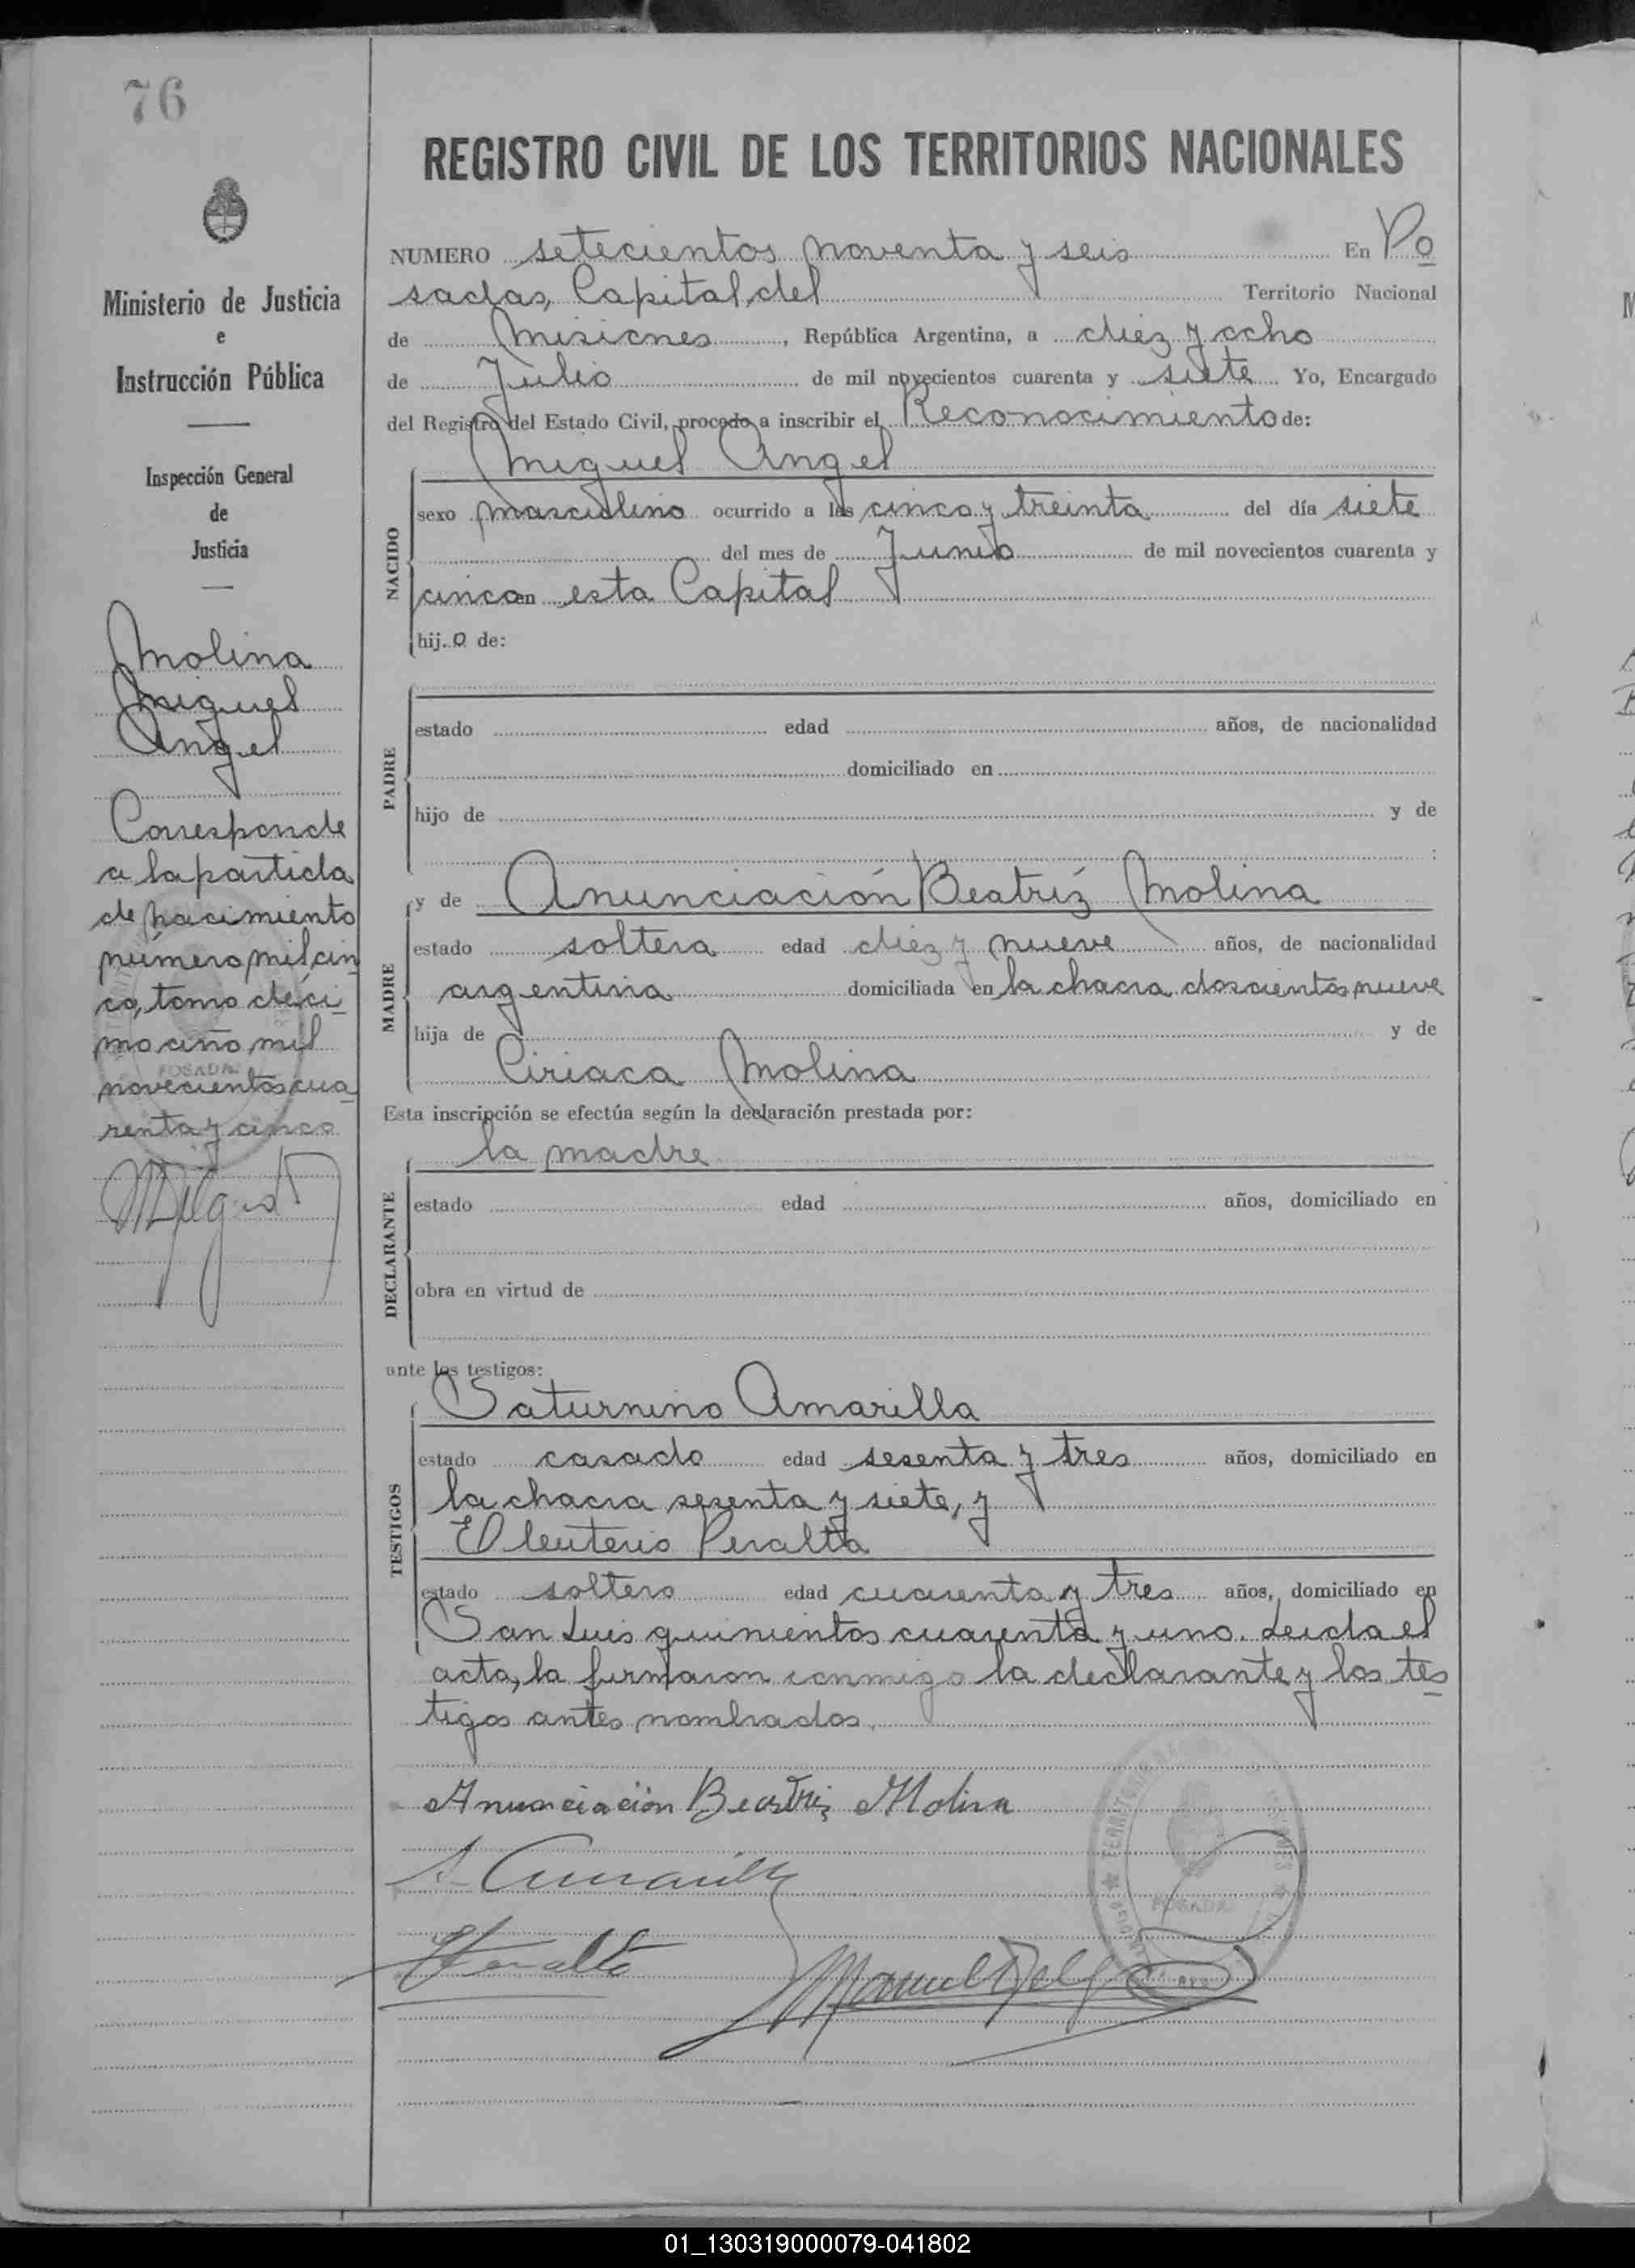 76
Ministerio de Justicia
e
Instrucción Pública
Inspección General
de
Justicia
Molina
Miguel
Angel
Corresponde
a la partida
de nacimiento
número mil cin
co, tomo déci
mo año mil
novecientos cua
renta y cinco
REGISTRO CIVIL DE LOS TERRITORIOS NACIONALES
NUMERO setecientos noventa y seis En Po
sadas, Capital del Territorio Nacional
de Misiones, República Argentina, a diez y ocho
de Julio de mil novecientos cuarenta y siete Yo, Encargado
del Registro del Estado Civil, procedo a inscribir el Reconocimiento de:
Miguel Angel
NACIDO
sexo masculino ocurrido a las cinco y treinta del día siete
del mes de Junio de mil novecientos cuarenta y
cinco en esta Capital
hijo de:
PADRE
estado edad años, de nacionalidad
domiciliado en
hijo de y de
:
MADRE
y de Anunciación Beatríz Molina
estado soltera edad diez y nueve años, de nacionalidad
argentina domiciliada en la chacra doscientos nueve
hija de y de
Ciriaca Molina
Esta inscripción se efectúa según la declaración prestada por:
la madre
DECLARANTE
estado edad años, domiciliado en
obra en virtud de
ante los testigos:
TESTIGOS
Saturnino Amarilla
estado casado edad sesenta y tres años, domiciliado en
la chacra sesenta y siete, y
Eleuterio Peralta
estado soltero edad cuarenta y tres años, domiciliado en
San Luis quinientos cuarenta y uno. Leida el
acta, la firmaron conmigo la declarante y los tes
tigos antes nombrados.
Anunciación Beatriz Molina
S. Amarilla
E Peralta
Manuel Delg
POSADAS
01_130319000079-041802